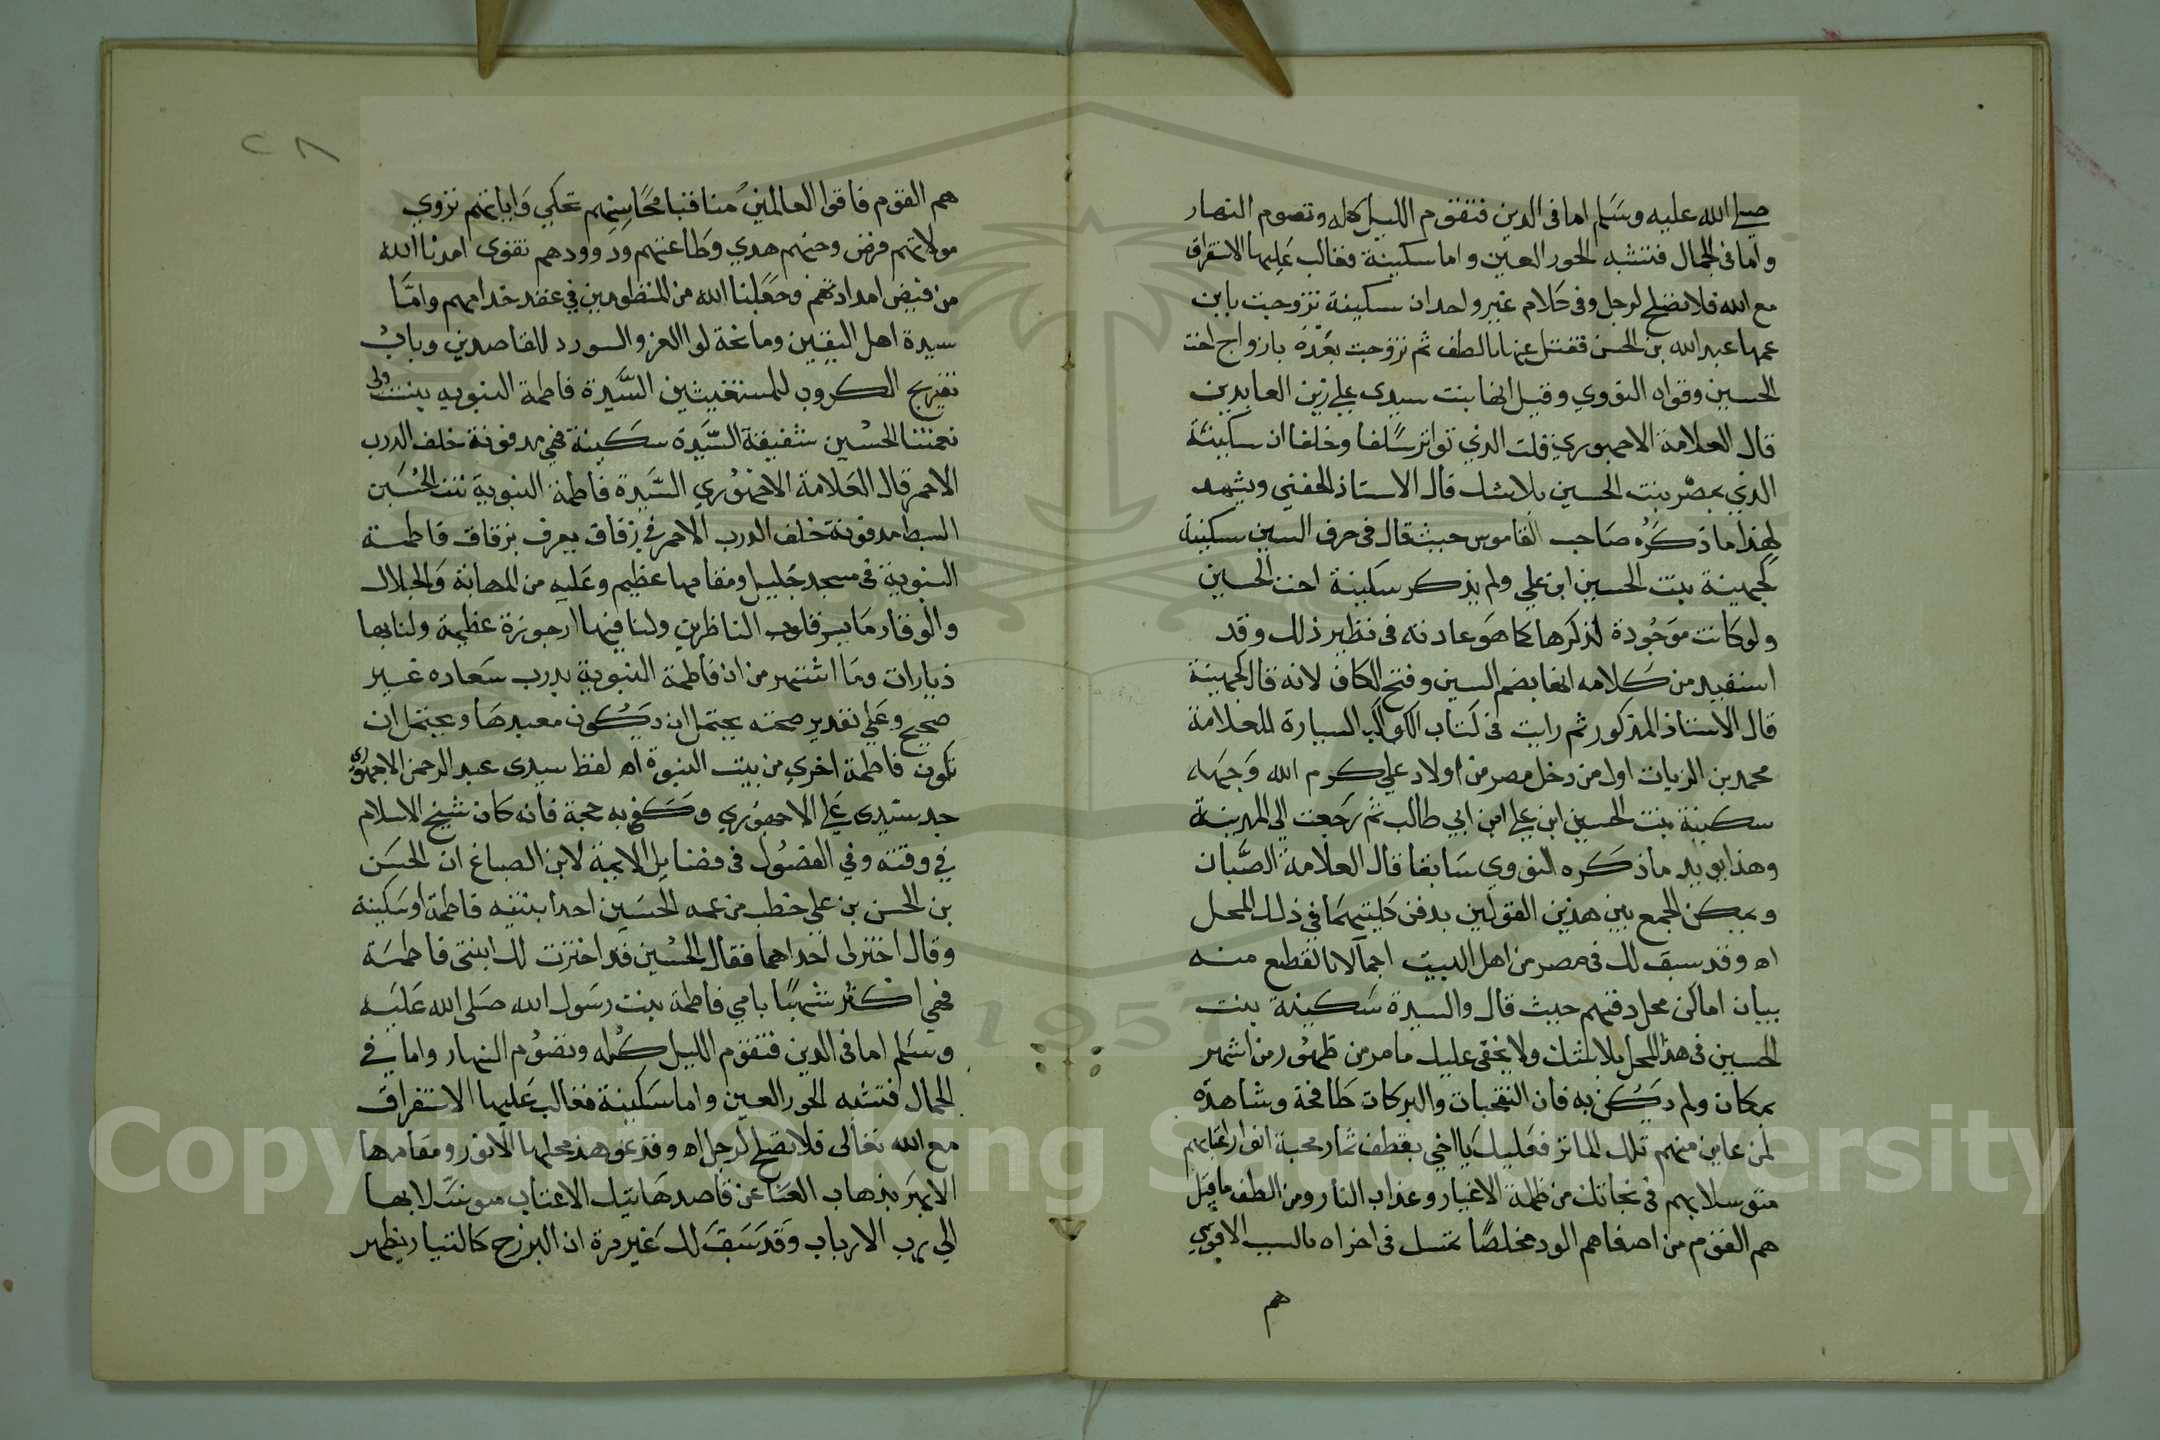 صلى الله عليه وسلم اما فى الدين فتقوم الليل كله وتصوم النهار
واما فى الجمال فتشبه الحور العين واما سكينة فغالب عليها الاستغراق
مع الله فلا تصلح لرجل وفى كلام غير واحد ان سكينة تزوجت بابن
عمها عبد الله بن الحسن فقتل عنها بالطف ثم تزوجت بعده بازواج اخت
الحسين وقواه النووي وقيل انها بنت سيدي علي زين العابدين
قال العلامة الاجهوري قلت الذي تواتر سلفا وخلفا ان سكينة
الذي بمصر بنت الحسين بلا شك قال الاستاذ الحفني ويشهد
لهذا ما ذكره صاحب القاموس حيث قال فى حرف السين سكينة
كجهينة بنت الحسين ابن علي ولم يذكر سكينة اخت الحسين
ولو كانت موجودة لذكرها كما هو عادته فى نظير ذلك وقد
استفيد من كلامه انها بضم السين وفتح الكاف لانه قال كجهينة
قال الاستاذ المذكور ثم رايت فى كتاب الكواكب السيارة للعلامة
محمد بن الزيات اول من دخل مصر من اولاد علي كرم الله وجهه
سكينة بنت الحسين ابن علي ابن ابي طالب ثم رجعت الى المدينة
وهذا يويد ما ذكره النووي سابقا قال العلامة الصبان
ويمكن الجمع بين هذين القولين بدفن كليتيهما في ذلك المحل
اه وقد سبق لك فى مصر من اهل البيت اجمالا نا لقطع منه
ببيان اماكن محل دفنهم حيث قال والسيدة سكينة بنت
الحسين فى هذا المحل بلا شك ولا يخفى عليك ما مر من ظهور من اشهر
بمكان ولم يكن به فان النفحات والبركات طافحة وشاهدة
لمن عاين منهم تلك الماثر فعليك يا اخي بقطف ثمار محبة انوار اعتابهم
متوسلا بهم فى نجاتك من ظلمة الاغيار وعذاب النار ومن الطف ما قيل
هم القوم من اصفاهم الود مخلصا تمسك فى اخراه بالسبب الاقوي
هم
٢٨
هم القوم فاقوا العالمين مناقبا محاسنهم تحكي واياتهم تروي
موالاتهم فرض وحبهم هدي وطاعتهم ود وودهم تقوى امدنا الله
من فيض امداداتهم وجعلنا الله من المنظومين في عقد خدامهم واما
سيدة اهل اليقين ومانحة لوا العز والسودد للقاصدين وباب
تفريج الكروب للمستغيثين السيدة فاطمة النبويه بنت ولى
نعمتنا الحسين شقيقة السيدة سكينة فهي مدفونة خلف الدرب
الاحمر قال العلامة الاجهوري السيدة فاطمة النبوية بنت الحسين
السبط مدفونة خلف الدرب الاحمر في زقاق يعرف بزقاق فاطمة
النبوية فى مسجد جليل ومقامها عظيم وعليه من المهابة والجلال
والوقار ما يسر قلوب الناظرين ولنا فيها ارجوزة عظيمة ولنا بها
زيارات وما اشتهر من ان فاطمة النبوية بدرب سعاده غير
صحيح وعلي تقدير صحته يحتمل ان يكون معبدها ويحتمل ان
تكون فاطمة اخري من بيت النبوة اه لفظ سيدى عبد الرحمن الاجهوري
جد سيدى علي الاجهوري وكفى به حجة فانه كان شيخ الاسلام
في وقته وفي الفصول فى فضايل الايمة لابن الصباغ ان الحسن
بن الحسن بن علي خطب من عمه الحسين احدا بنتيه فاطمة او سكينة
وقال اختر لى احداهما فقال الحسين قد اخترت لك ابنتى فاطمة
فهي اكثر شبها بامي فاطمة بنت رسول الله صلى الله عليه
وسلم اما فى الدين فتقوم الليل كله وتصوم النهار واما في
الجمال فتشبه الحور العين واما سكينة فغالب عليها الاستغراق
مع الله تعالى فلا تصلح لرجل اه وقد عوهد محلها الانور ومقامها
الابهر بذهاب العنا عن قاصد هاتيك الاعتاب متوسلا بها
الي رب الارباب وقد سبق لك غير مرة ان البرزخ كالتيار يظهر